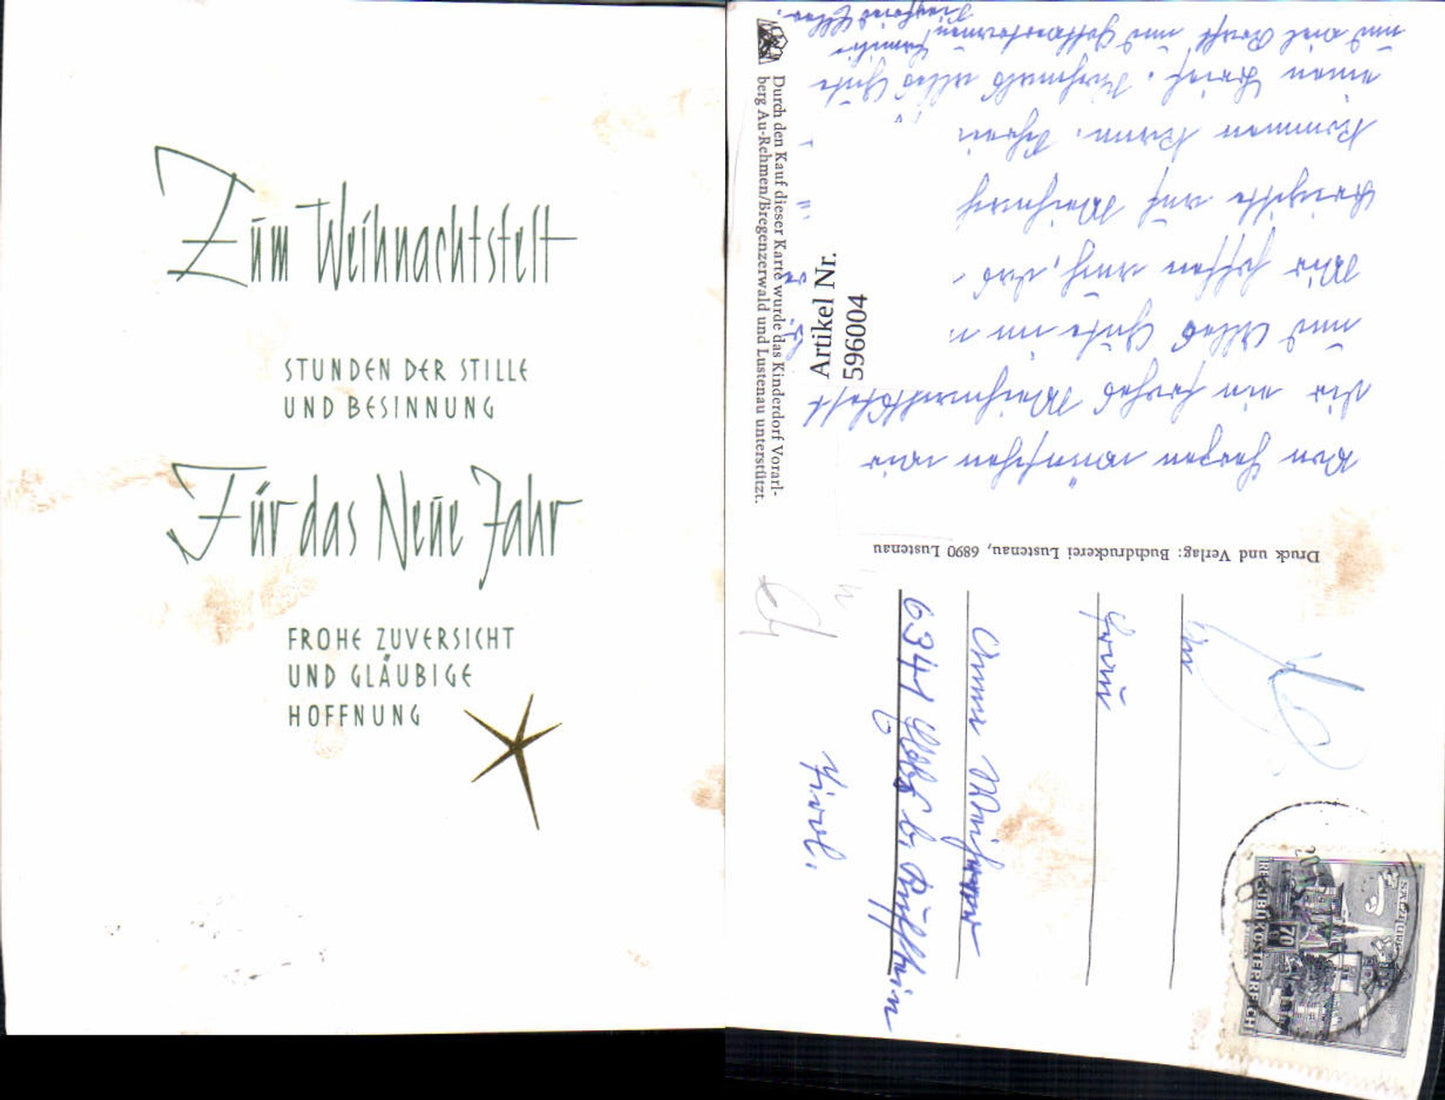 Zum Weihnachtsfest
STUNDEN DER STILLE
UND BESINNUNG
Für das Neue Jahr
FROHE ZUVERSICHT
UND GLÄUBIGE
HOFFNUNG
Durch den Kauf dieser Karte wurde das Kinderdorf Vorarl-
berg Au-Rehmen/Bregenzerwald und Lustenau unterstützt.
Artikel Nr.
596004
Von Herzen wünschen wir
dir ein frohes Weihnachtsfest
und Alles Gute
Wir hoffen auch, das
Brigitte auf Weihnach
kommen kann.
einen Brief. Nochmals alles Gute
und viel Kraft und Gottvertrauen, Familie
Druck und Verlag: Buchdruckerei Lustenau, 6890 Lustenau
An
Frau
Anna
6341 Ebbs b. Kufstein
Tirol.
SALZBURG
70 g
REPUBLIK ÖSTERREICH